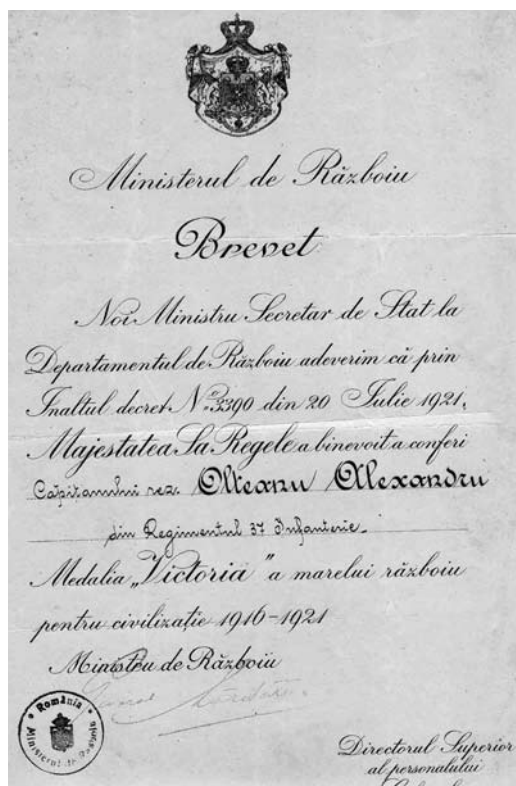 Ministerul de Războiu
Brevet
Noi Ministru Secretar de Stat la
Departamentul de Războiu adeverim că prin
Inaltul decret No. 3390 din 20 Iulie 1921,
Majestatea Sa Regele a binevoit a conferi
Căpitanului rez. Olteanu Alexandru
din Regimentul 37 Infanterie.
Medalia „Victoria" a marelui războiu
pentru civilizație 1916-1921
Ministru de Războiu
România
Ministerul de Războiu
Directorul Superior
al personalului